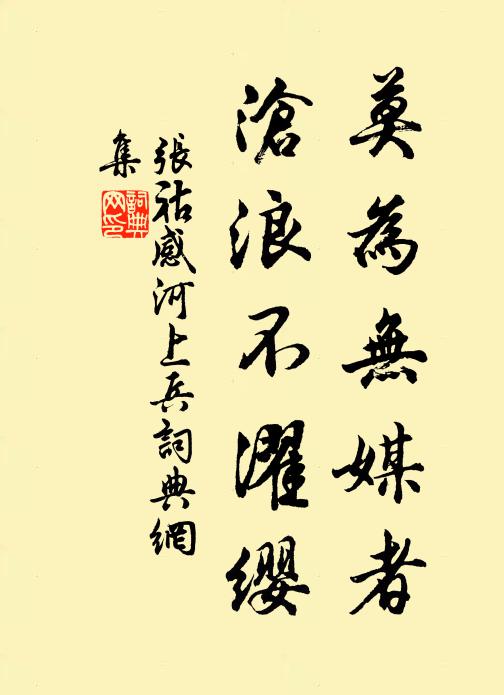 莫為無媒者
滄浪不濯纓
張祜感河上兵詞典網
集
詞典
网印